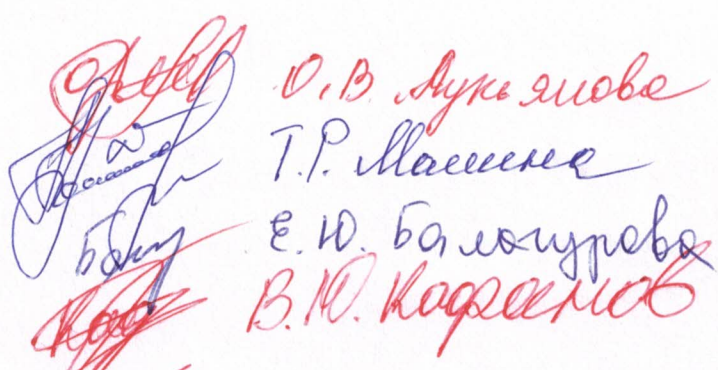 О.В. Лукьянова
Т.Р. Машина
Е.Ю. Балагурова
В.Ю. Кафанов